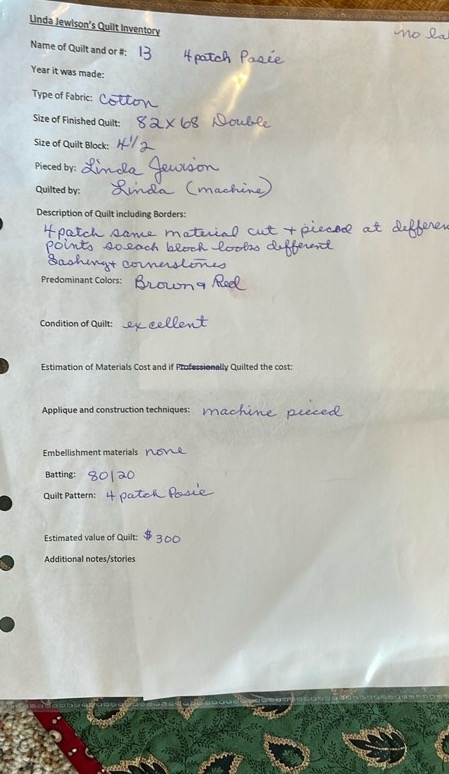 Linda Jewison's Quilt Inventory
no la
Name of Quilt and or #: 13 4 patch Pasie
Year it was made:
Type of Fabric: Cotton
Size of Finished Quilt: 82 x 68 Double
Size of Quilt Block: 4 1/2
Pieced by: Linda Jewison
Quilted by: Linda (machine)
Description of Quilt including Borders:
4 patch same material cut + pieced at differen
points so each block looks different
Sashing + cornerstones
Predominant Colors: Brown + Red
Condition of Quilt: excellent
Estimation of Materials Cost and if Professionally Quilted the cost:
Applique and construction techniques: machine pieced
Embellishment materials none
Batting: 80/20
Quilt Pattern: 4 patch Posie
Estimated value of Quilt: $300
Additional notes/stories